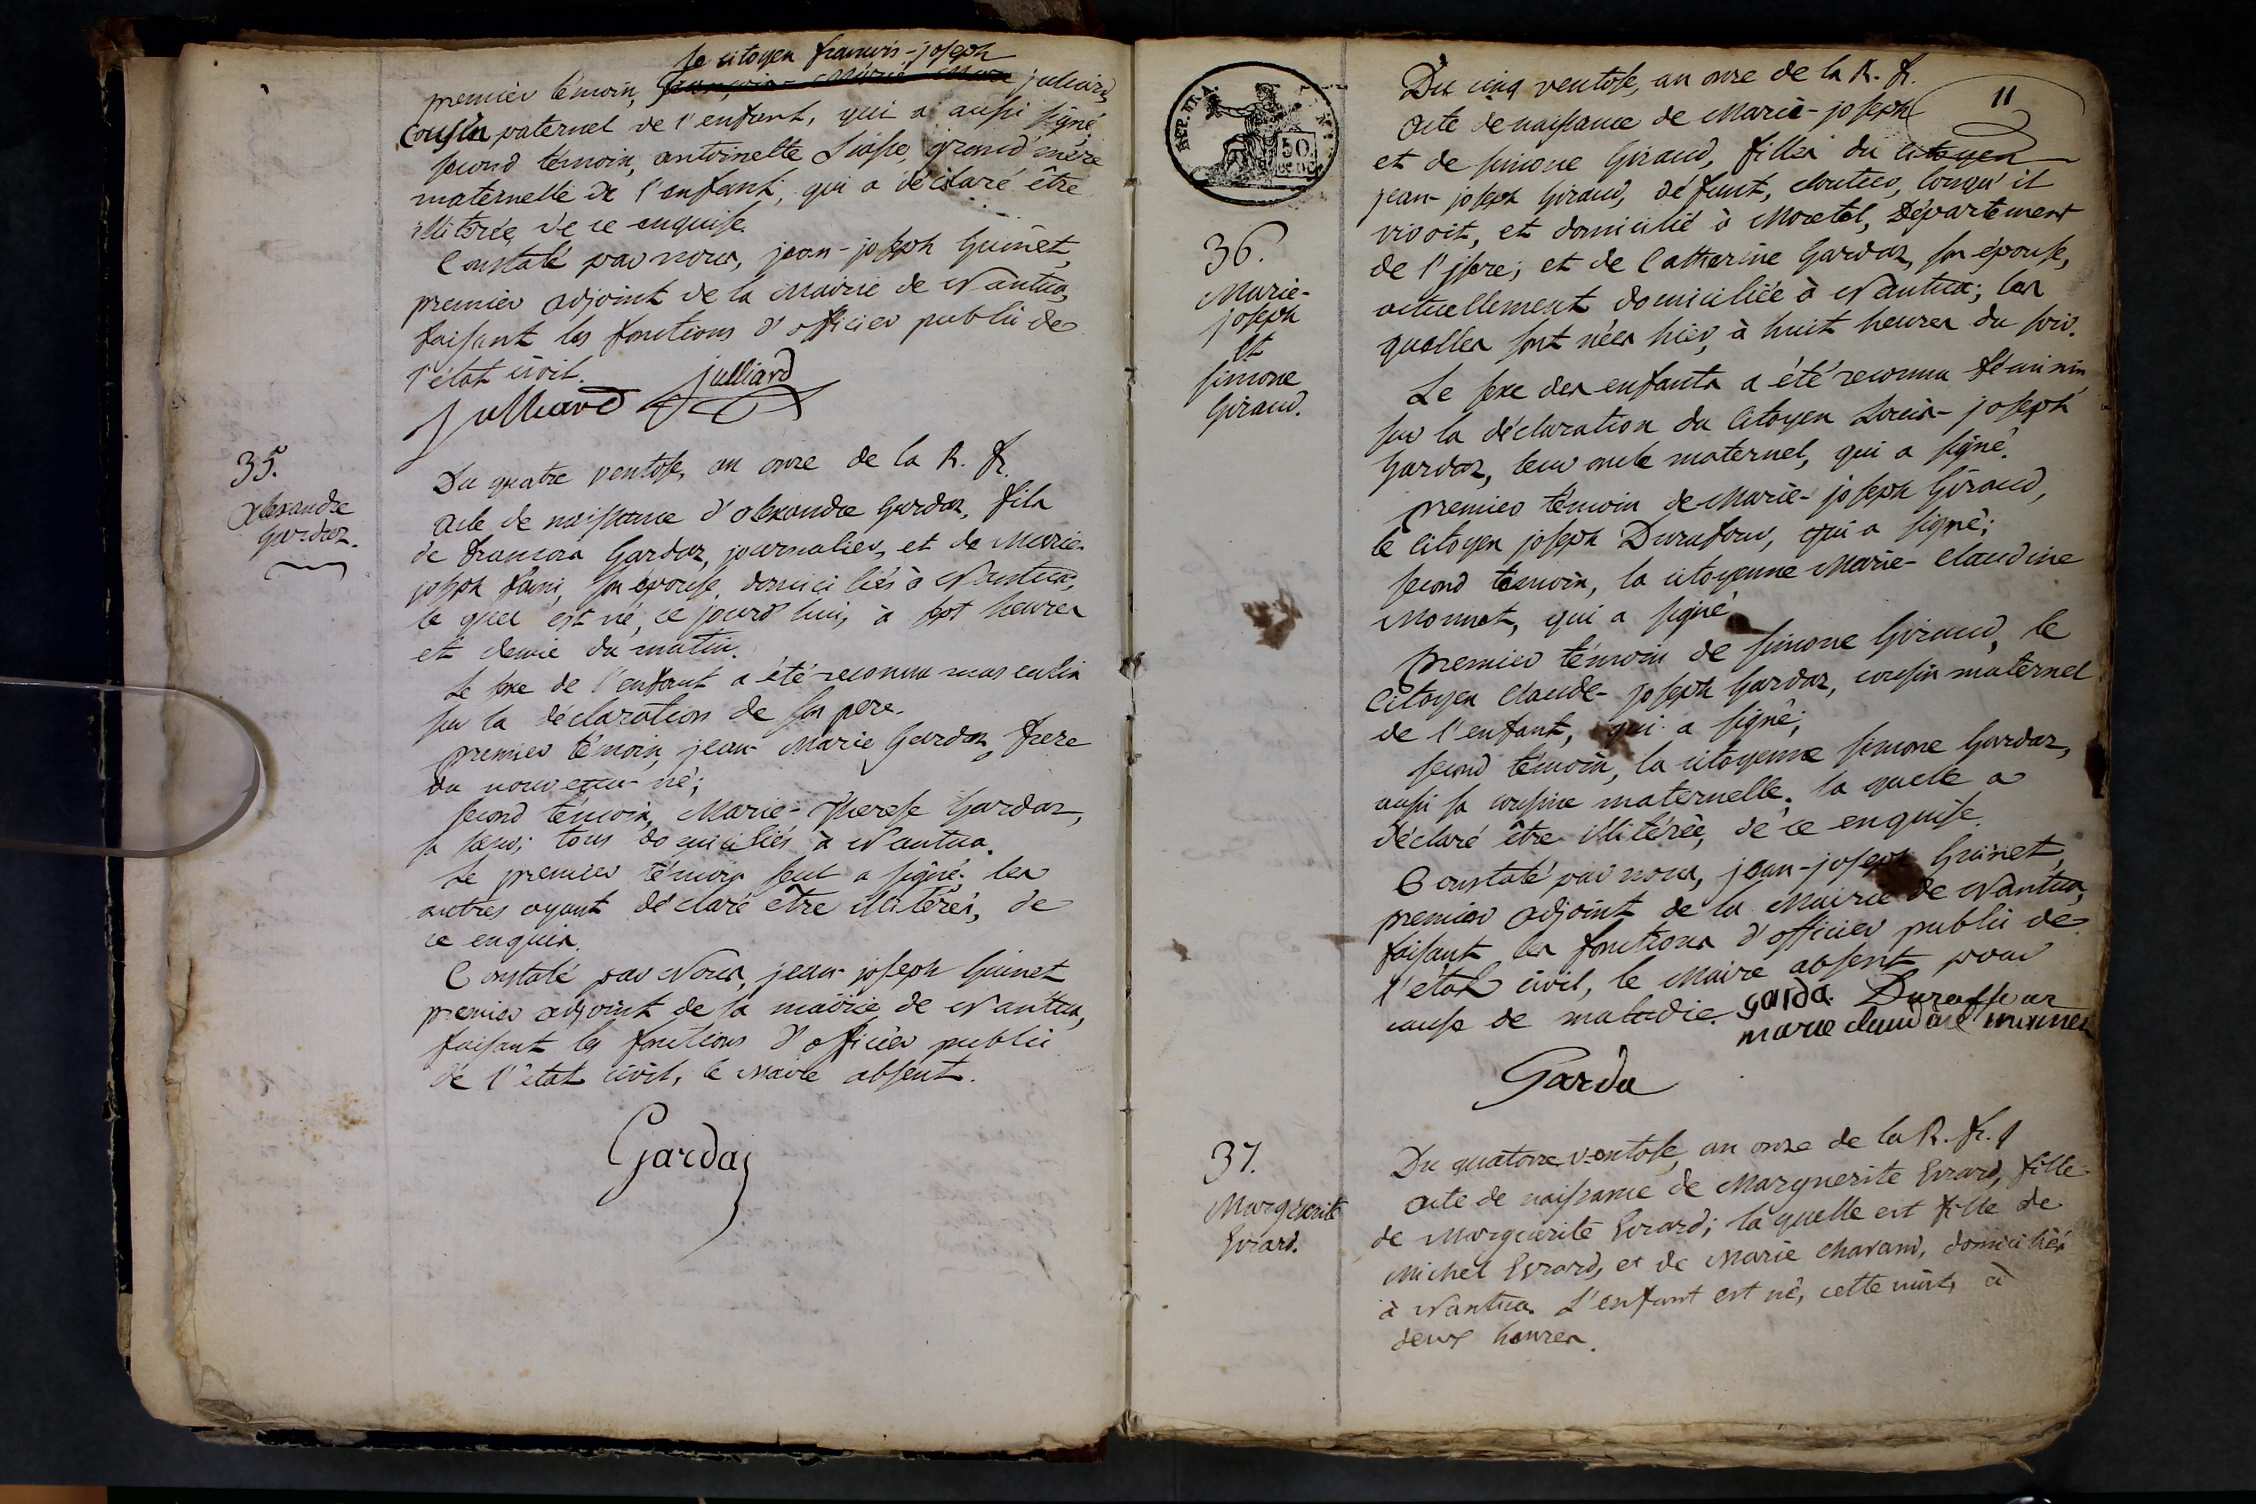 le citoyen francois-joseph
premier témoin, julliard,
Cousin paternel de l'enfant, qui a aussi signé.
second témoin, antoinette grand'mère
maternelle de l'enfant, qui a déclaré être
illitérée, de ce enquise.
Constaté par nous, jean-joseph Guinet,
premier adjoint de la Mairie de Nantua,
faisant les fonctions d'officier public de
l'état civil.
julliard
Julliard
35.
alexandre
Gardaz.
Du quatre ventose, an onze de la R. fr.
acte de naissance d'alexandre Gardaz, fils
de francois Gardaz, journalier, et de Marie-
joseph son épouse, domiciliés à Nantua,
le quel est né, ce jourd'hui, à sept heures
et demie du matin.
Le sexe de l'enfant a été reconnu masculin
sur la déclaration de son pere.
premier témoin, jean-Marie Gardaz, frere
du nouveau-né;
second témoin, Marie-Therese Gardaz,
sa sœur; tous domiciliés à Nantua.
Le premier témoin seul a signé. les
autres ayant déclaré être illitérés, de
ce enquis.
Constaté par Nous, jean-joseph Guinet
premier adjoint de la mairie de Nantua,
faisant les fonctions d'officier public
de l'état civil, le Maire absent.
Garda
REP. FRA.
50
CENT
11
36.
Marie-
joseph
et
simone
Giraud.
Du cinq ventose, an onze de la R. fr.
acte de naissance de Marie-joseph
et de simone Giraud, filles du citoyen
jean-joseph Giraud, défunt, cloutier, lorsqu'il
vivoit, et domicilié à Moretel, Département
de l'jsere; et de Catherine Gardaz, son épouse,
actuellement domiciliée à Nantua; les
quelles sont nées hier, à huit heures du soir.
Le sexe des enfants a été reconnu féminin,
sur la déclaration du Citoyen Louis-joseph
Gardaz, leur oncle maternel, qui a signé.
premier témoin de Marie-joseph Giraud,
le Citoyen joseph Durafour, qui a signé;
second témoin, la citoyenne Marie-Claudine
Monnet, qui a signé.
premier témoin de simone Giraud, le
Citoyen Claude-joseph Gardaz, cousin maternel
de l'enfant, qui a signé;
second témoin, la citoyenne simone Gardaz,
aussi sa cousine maternelle; la quelle a
déclaré être illitérée, de ce enquise.
Constaté par nous, jean-joseph Guinet,
premier adjoint de la Mairie de Nantua,
faisant les fonctions d'officier public de
l'état civil, le Maire absent pour
cause de maladie. garda. Duraffour
marie claudine monnet
Garda
37.
Marguerite
Evrard.
Du quatorze ventose, an onze de la R. fr.
acte de naissance de Marguerite Evrard, fille
de Marguerite Evrard; la quelle est fille de
Michel Evrard, et de Marie Chavand, domiciliés
à Nantua. L'enfant est né, cette nuit, à
deux heures.